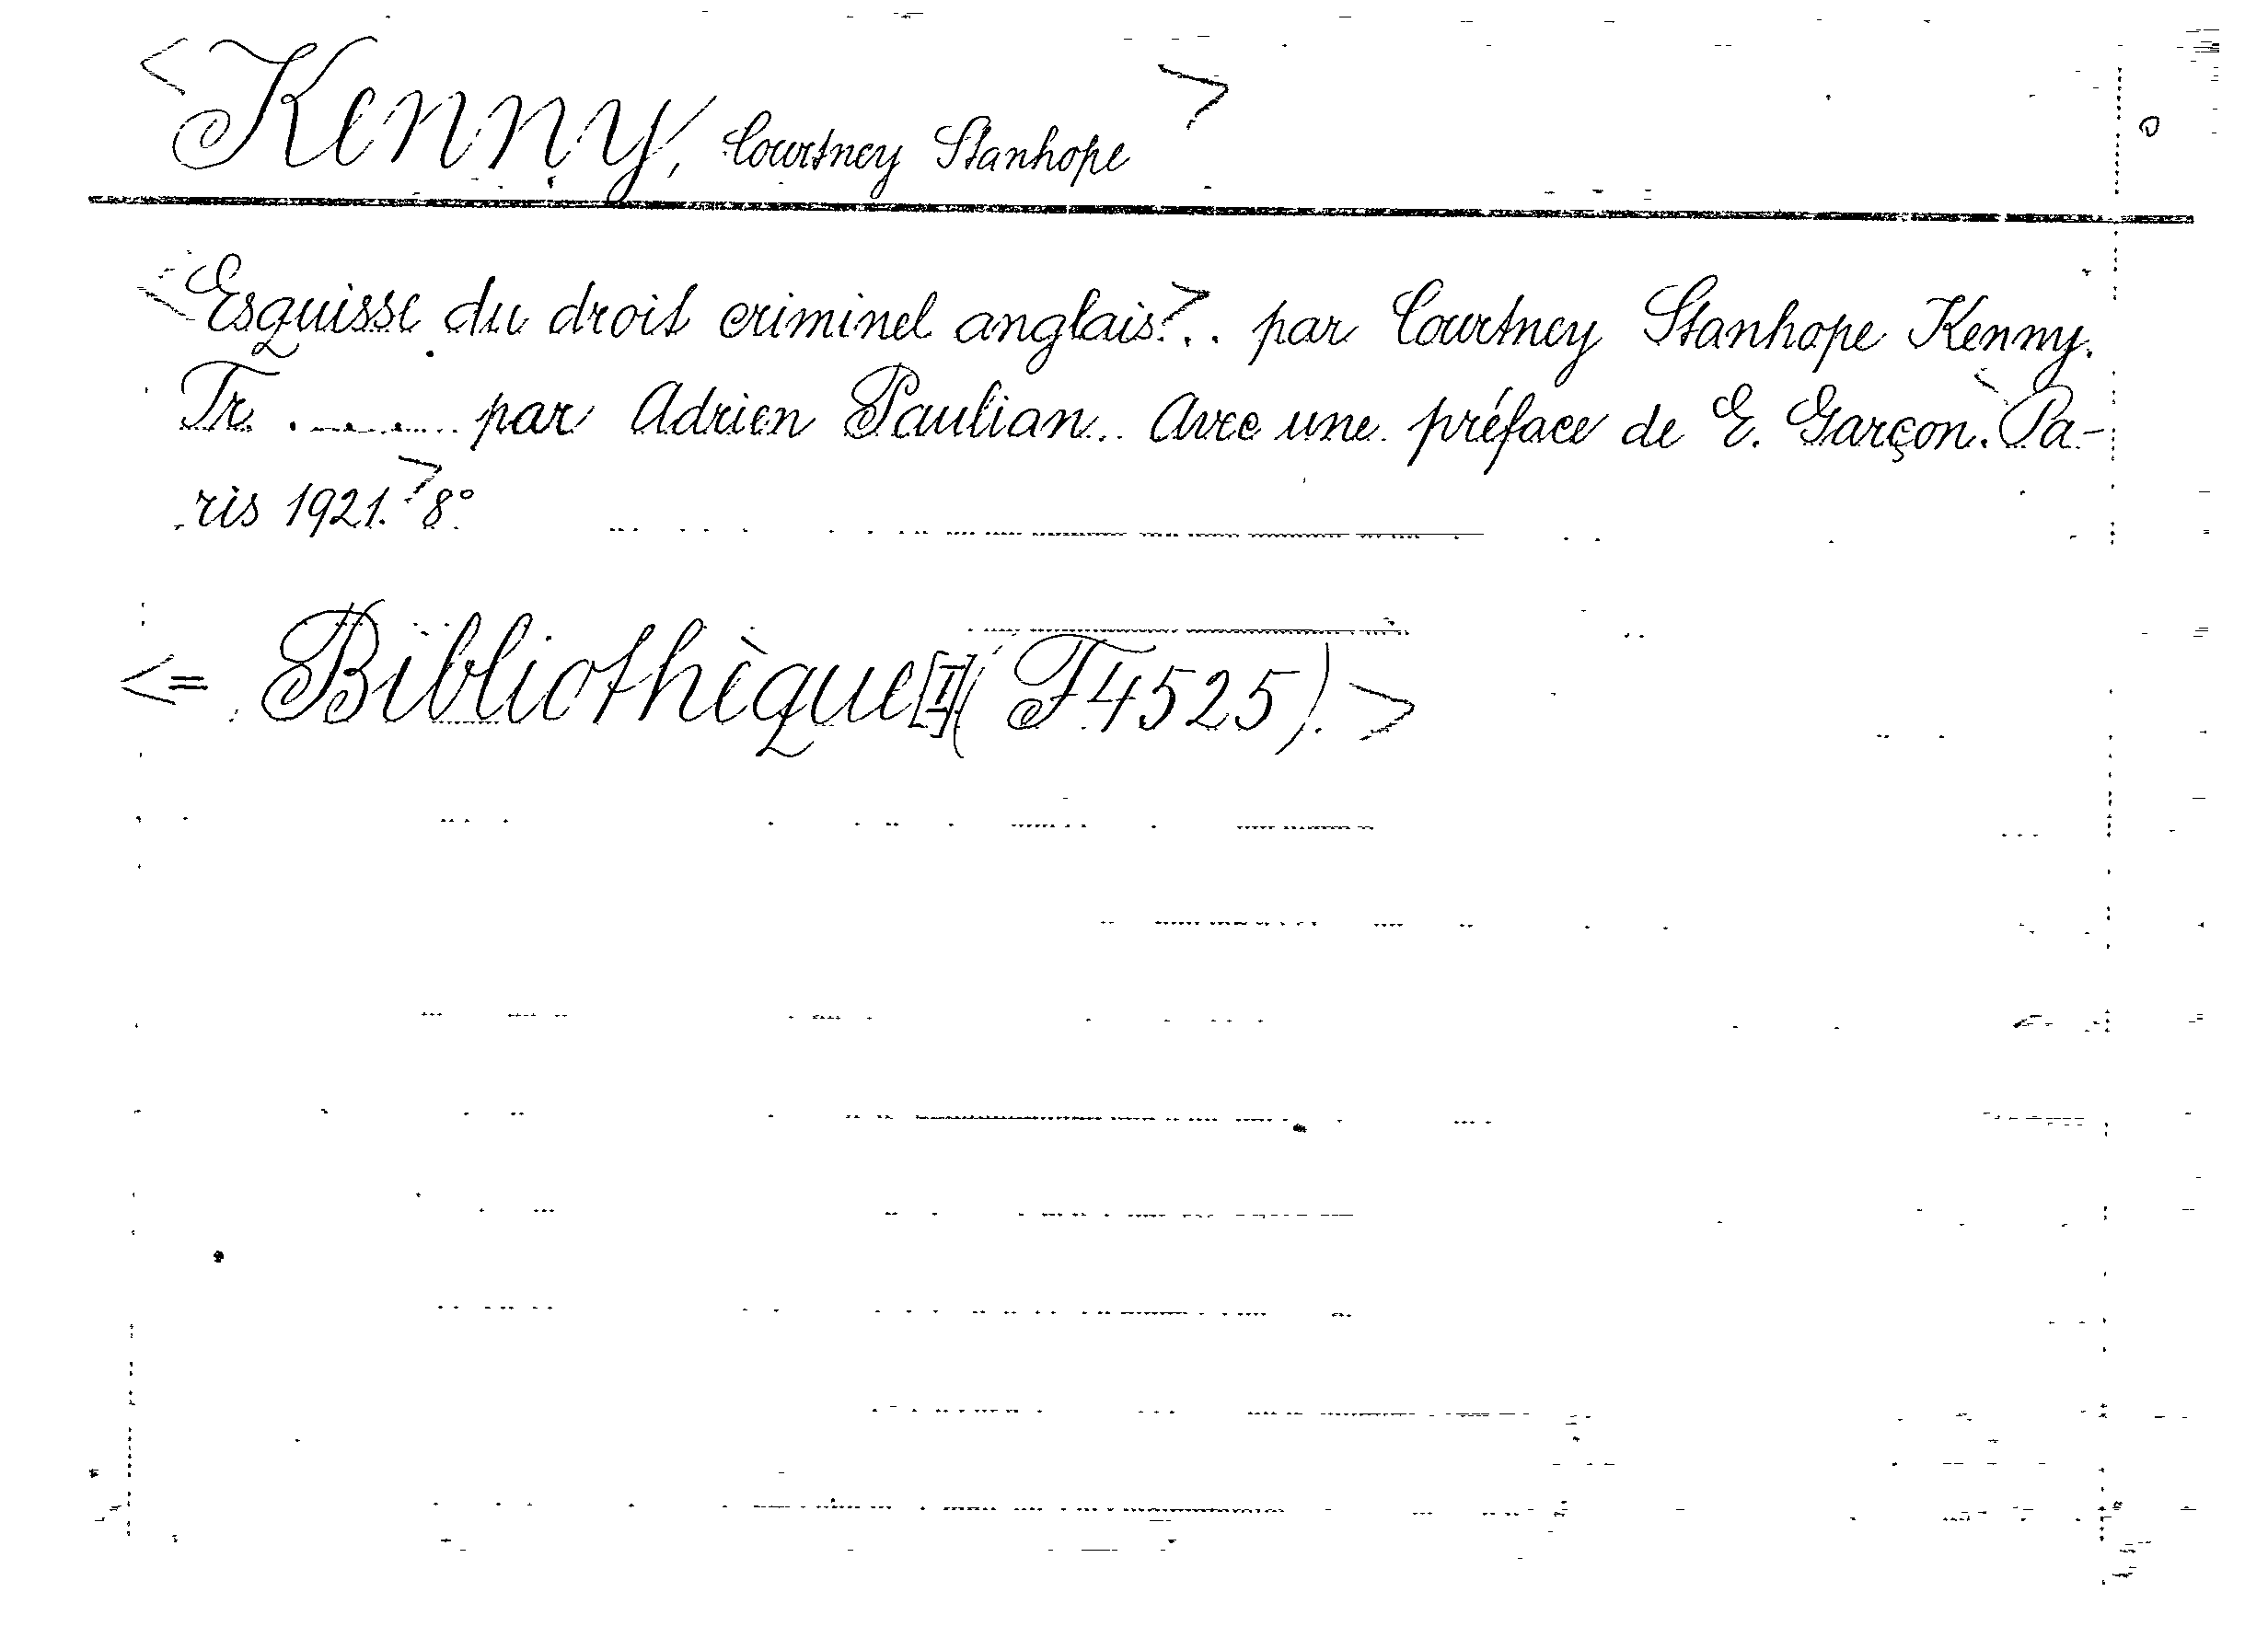 <Kenny, Courtney Stanhope>
<Esquisse du droit criminel anglais>... par Courtney Stanhope Kenny.
Tr. ........ par Adrien Paulian... Avec une préface de E. Garçon. <Pa-
ris 1921.> 8°
<= Bibliothèque [I] (F4525).>